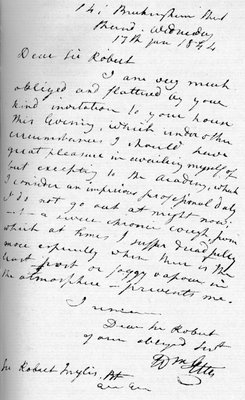 14: Buckingham Street
Strand. Wednesday
17th Jan 1844
Dear Sir Robert
I am very much
obliged and flattered by your
kind invitation to your house
this Evening, which under other
circumstances I should have
great pleasure in availing myself of
but excepting to the Academy, which
I consider an imperious professional duty,
I do not go out at night now:
a severe chronic cough from
which at times I suffer dreadfully
more especially when there is the
least frost or foggy vapour in
the atmosphere – prevents me.
I remain
Dear Sir Robert
your obliged Servt
Wm Etty
Sir Robert Inglis. Bt